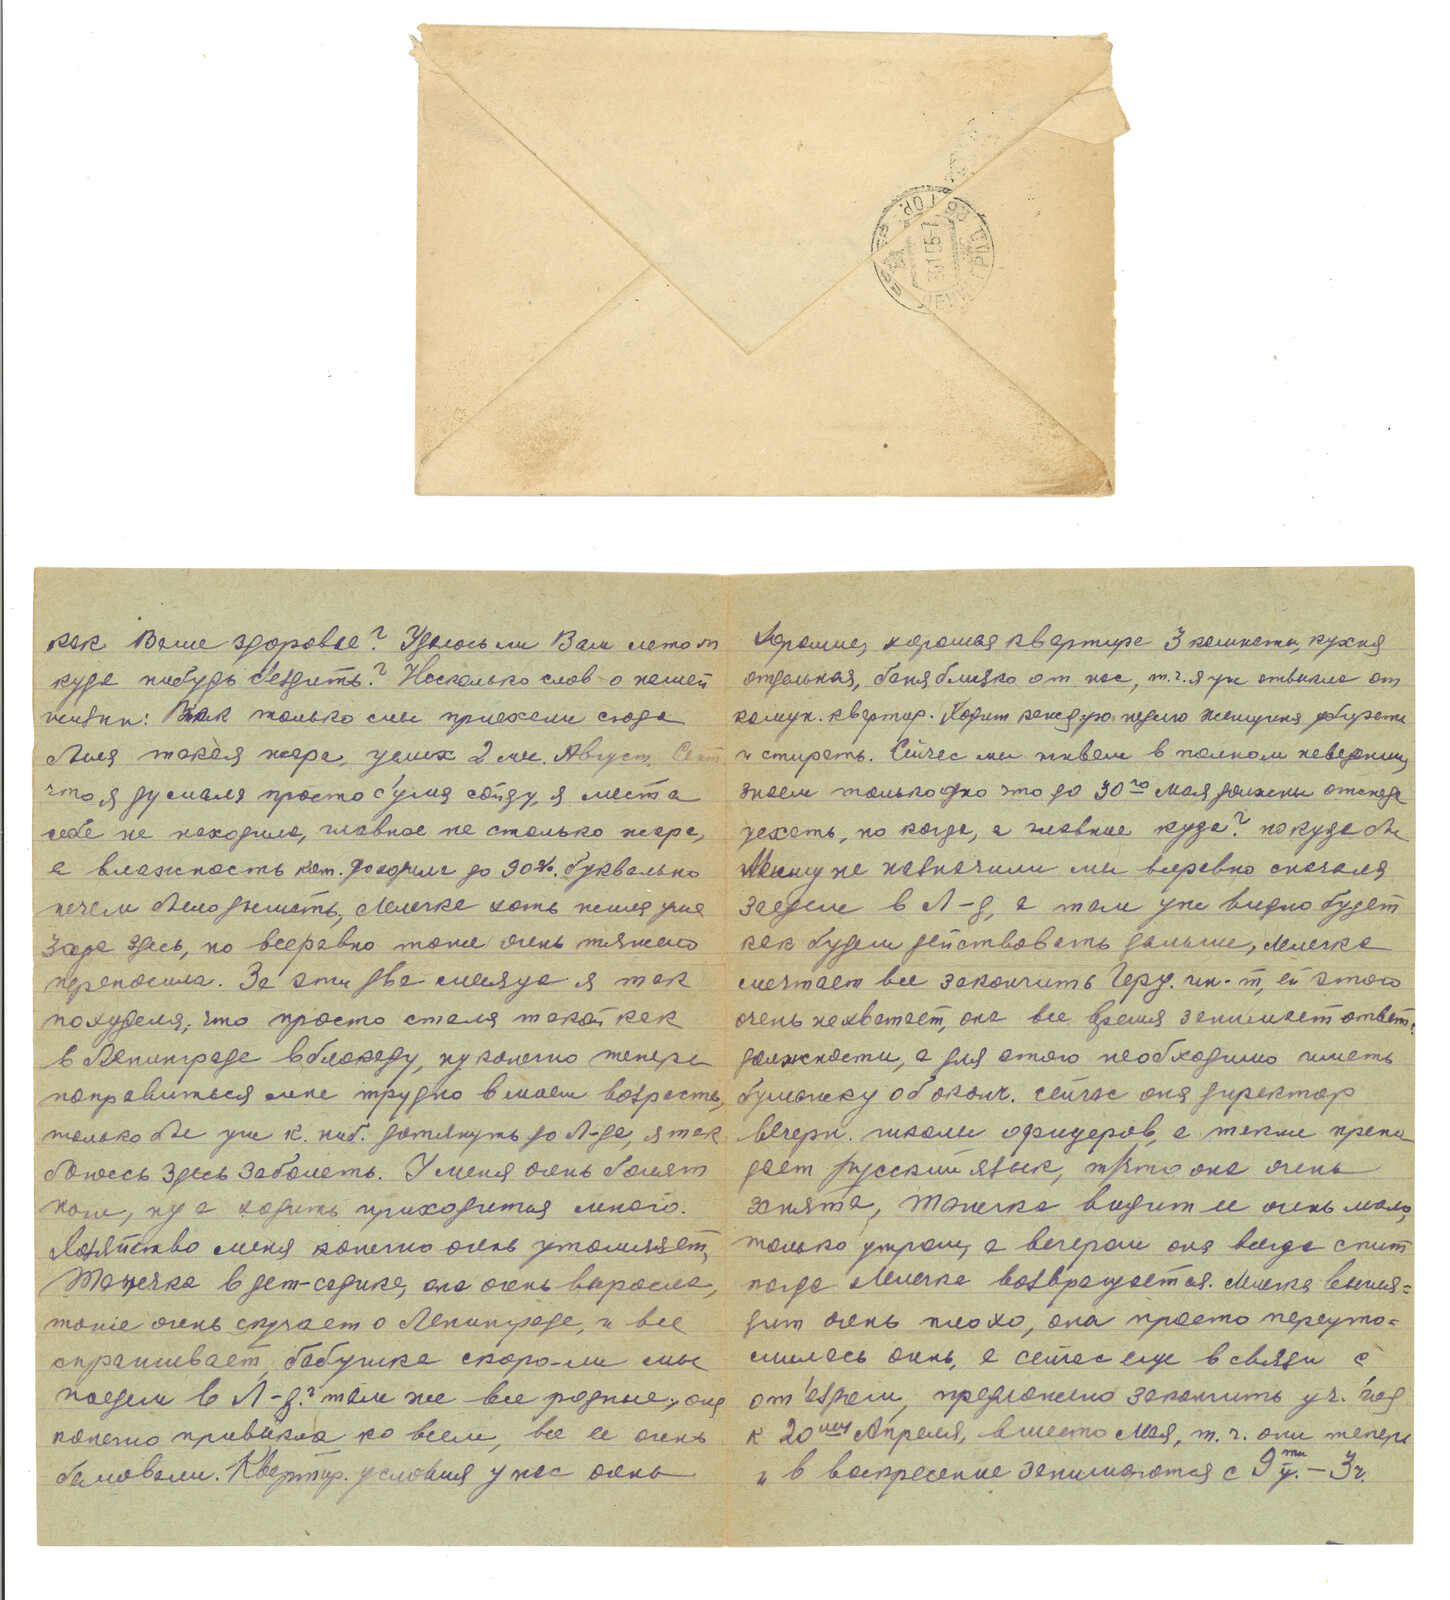 ЛЕНИНГРАД
31.1.55-7
ГОР.
как Ваше здоровье? Удалось ли Вам летом
куда нибудь съездить? Несколько слов о нашей
жизни: Как только мы приехали сюда
была такая жара, целых 2 мес. Август, Сент
что я думала просто с'ума сойду, я места
себе не находила, главное не столько жара,
а влажность кот. доходила до 90%, буквально
нечем было дышать, Милечка хоть жила уже
здесь, но всеравно тоже очень тяжело
переносила. За эти два месяца я так
похудела, что просто стала такой как
в Ленинграде в блокаду, ну конечно теперь
поправиться мне трудно в моем возрасте,
только бы уж к. ниб. дотянуть до Л-да, я так
боюсь здесь заболеть. У меня очень болят
ноги, ну а ходить приходится много.
Хозяйство меня конечно очень утомляет,
Танечка в дет-садике, она очень выросла,
тоже очень скучает о Ленинграде, и все
спрашивает, бабушка скоро-ли мы
поедем в Л-д? там же все родные, она
конечно привыкла ко всем, все ее очень
баловали. Квартир. условия у нас очень
хорошие, хорошая квартира 3 комнаты, кухня
отдельная, баня близко от нас, т.ч. я уж отвыкла от
комун. квартир. Ходит каждую неделю женщина убирать
и стирать. Сейчас мы живем в полном неведении,
знаем только одно что до 30го Мая должны отсюда
уехать, но когда, а главное куда? но куда бы
не назначили мы всеравно сначала
заедем в Л-д, а там уж видно будет
как будем действовать дальше, Милечка
мечтает все закончить Герц. ин-т, ей этого
очень не хватает, она все время занимает ответ.
должности, а для этого необходимо иметь
бумажку об оконч. сейчас она директор
вечерн. школы офицеров, а также препо
дает русский язык, она очень
занята, Танечка видит ее очень мало,
только утром, а вечером она всегда спит
когда Милечка возвращается. Милечка выгля=
дит очень плохо, она просто переуто=
милась очень, а сейчас еще в связи с
от'ездом, предложено закончить уч. год
к 20му Апреля, вместо Мая, т.ч. они теперь
и в воскресение занимаются с 9ти у. – 3ч.